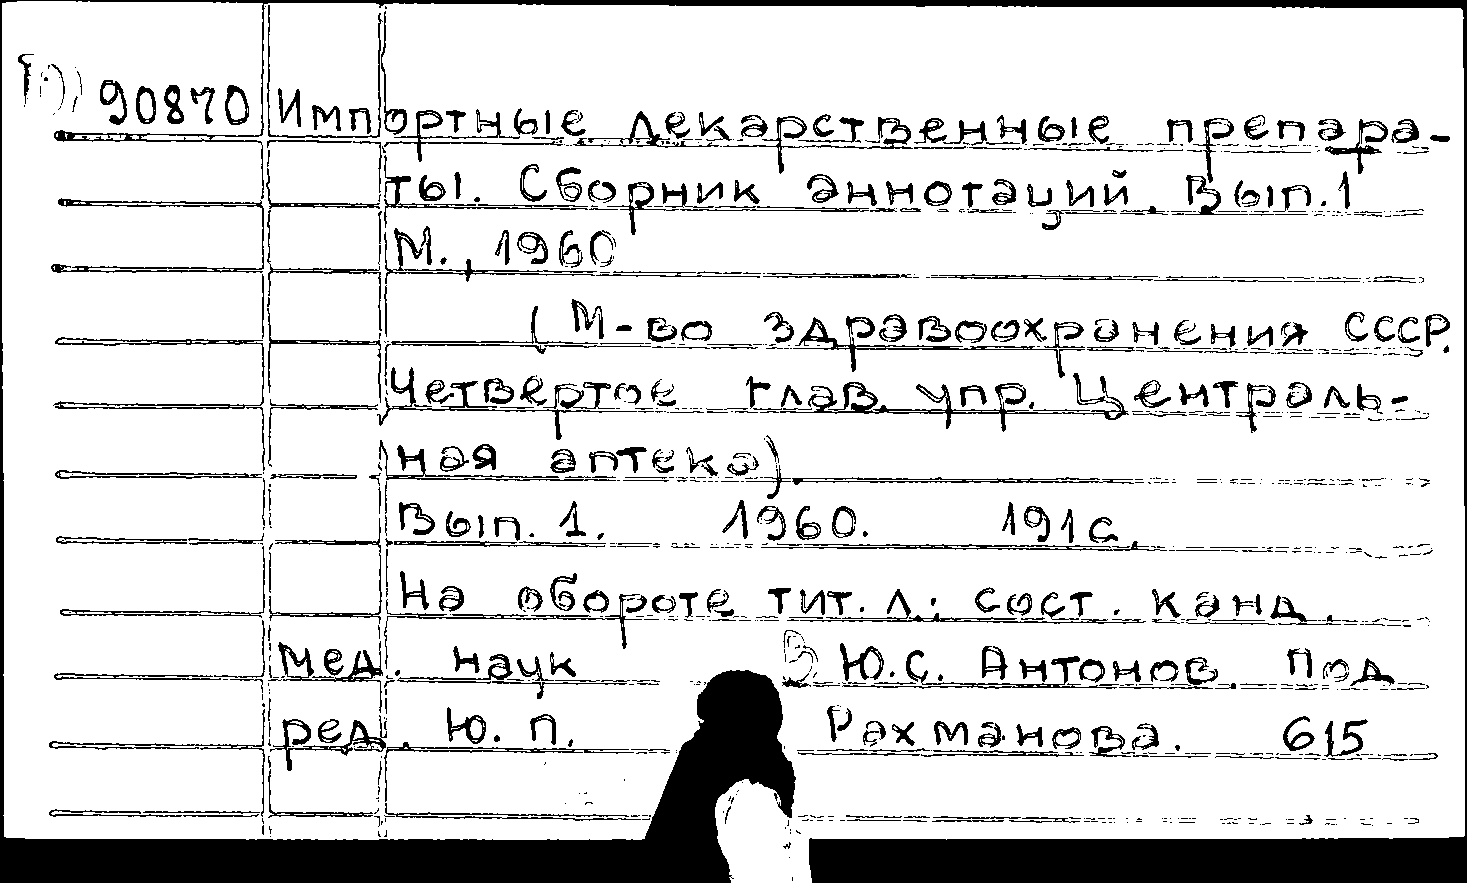 90870 Импортные лекарственные препара-
ты. Сборник аннотаций. Вып. 1
М., 1960
(М-во здравоохранения СССР.
Четвертое глав. упр. Централь-
ная аптека).
Вып. 1. 1960. 191с.
На обороте тит. л.: сост. канд.
мед. наук Ю.С. Антонов. Под
ред. Ю. П. Рахманова. 615